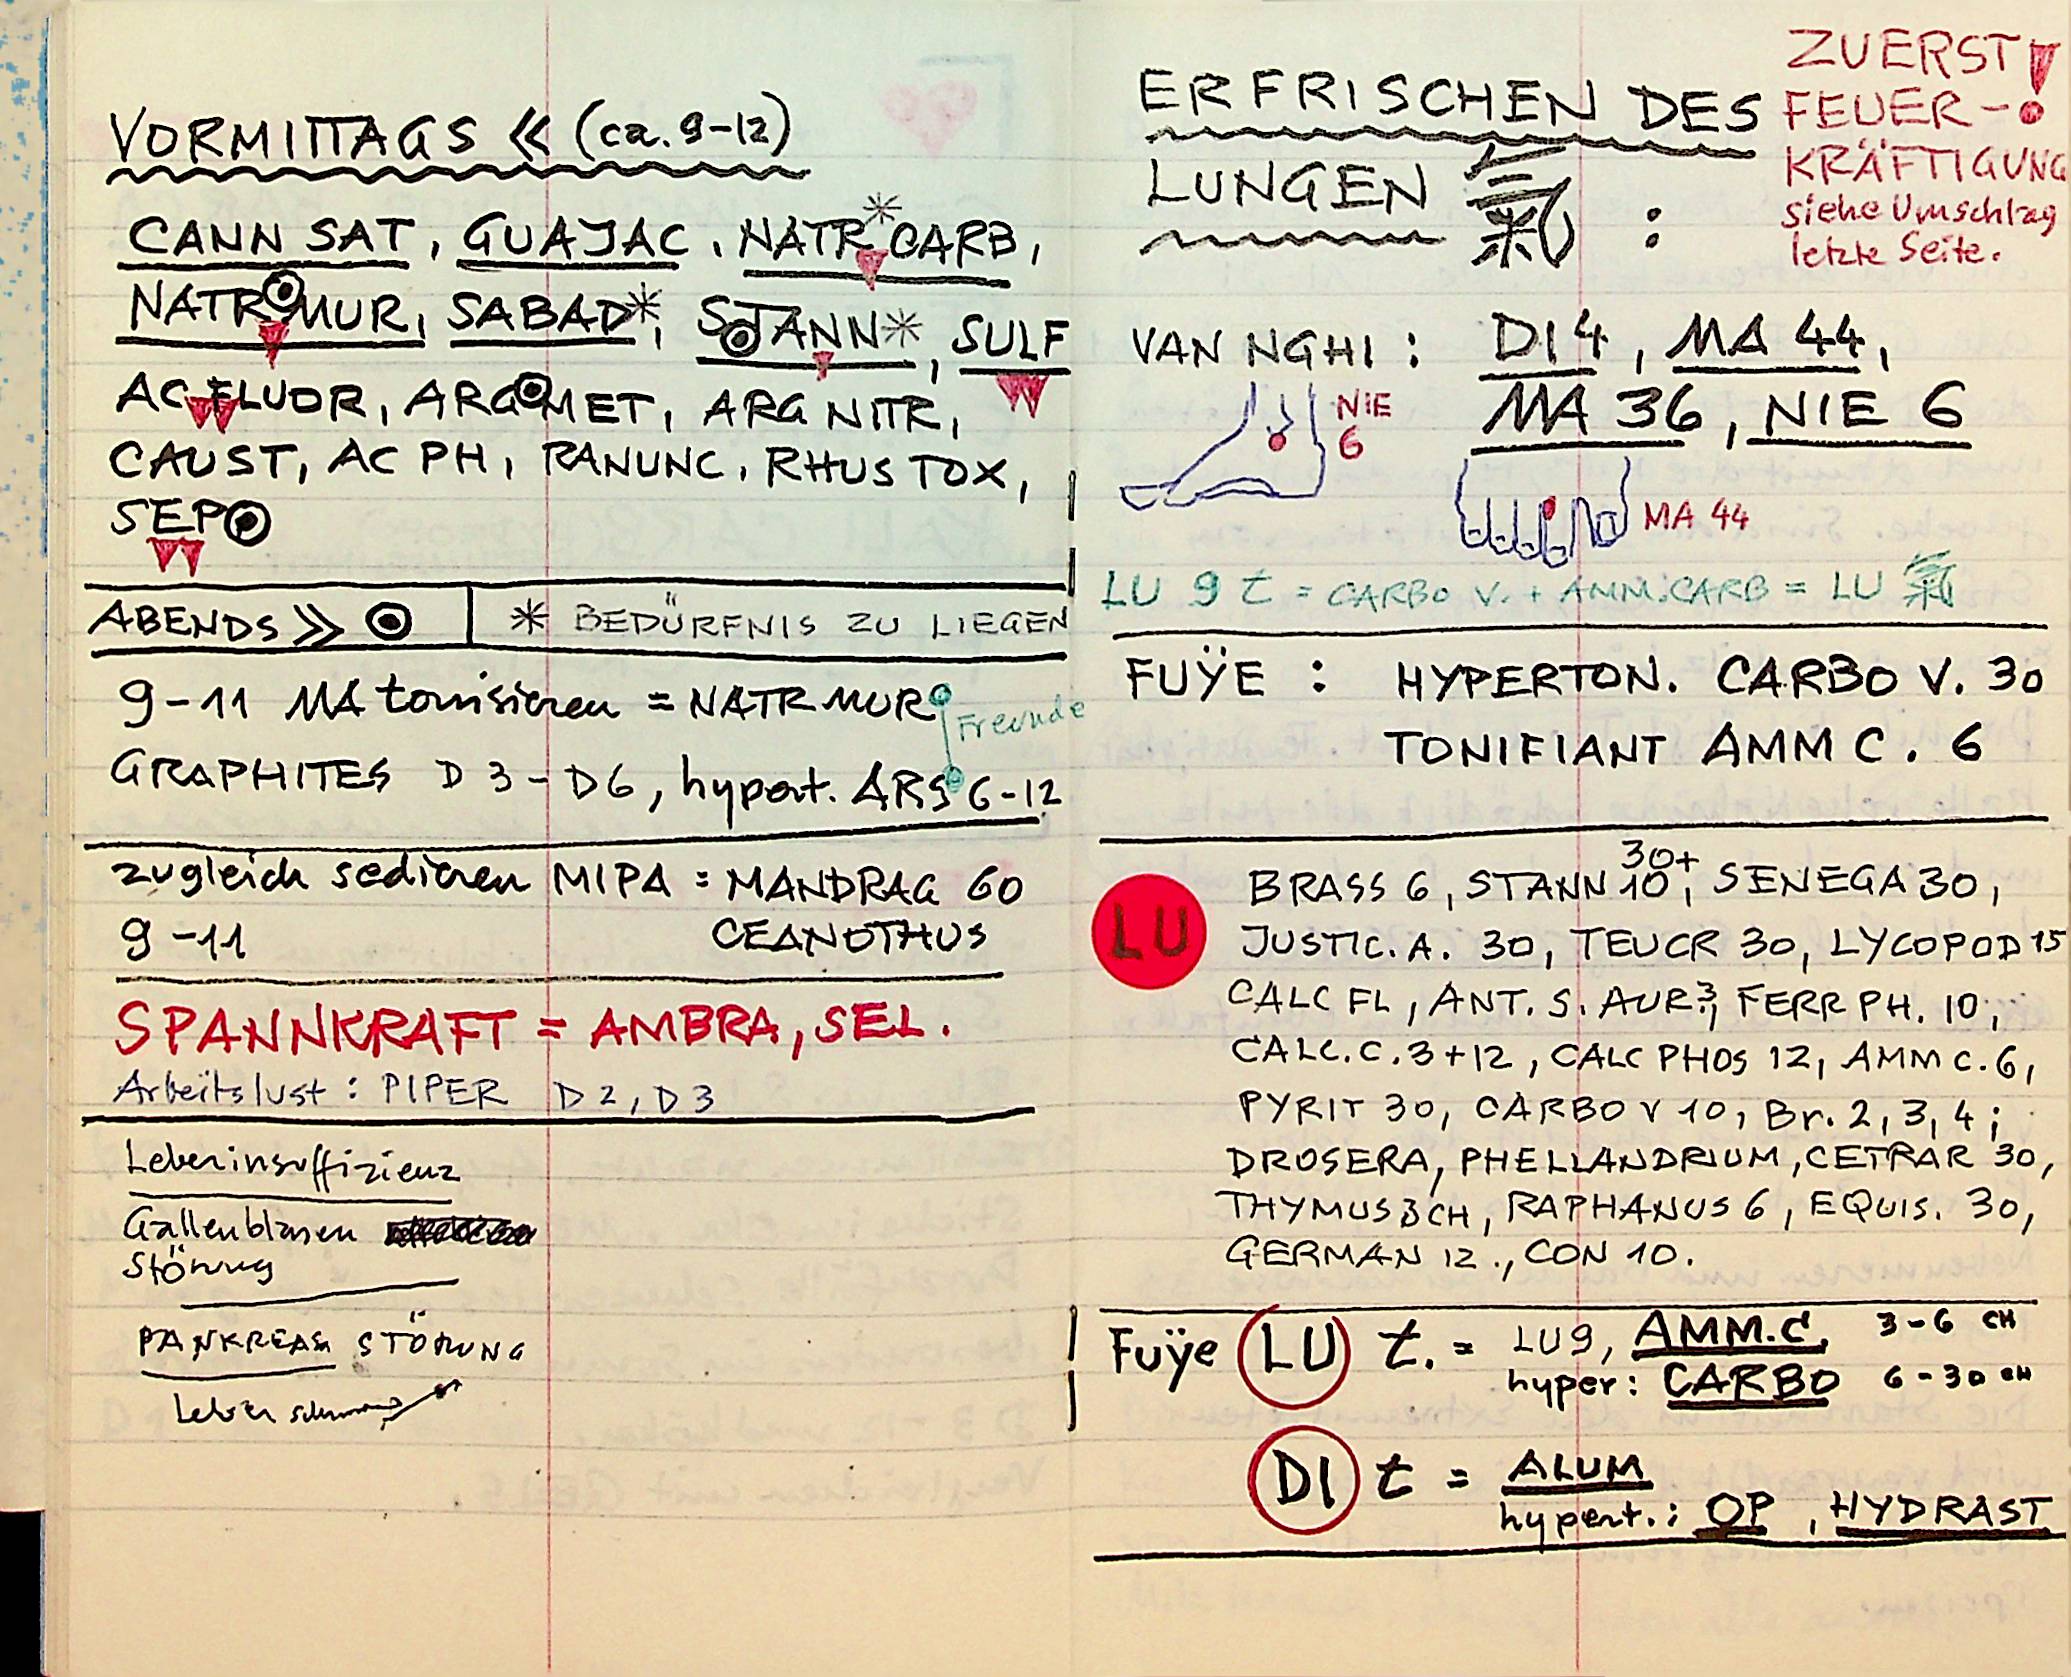 VORMITTAGS << (ca. 9-12)
CANN SAT, GUAJAC, NATR* CARB,
NATR MUR, SABAD*, STANN*, SULF
AC FLUOR, ARG MET, ARG NITR,
CAUST, AC PH, RANUNC, RHUS TOX,
SEP
ABENDS >> | * BEDÜRFNIS ZU LIEGEN
9-11 MA tonisieren = NATR MUR
Freunde
GRAPHITES D3-D6, hypert. ARS 6-12
zugleich sedieren MIPA = MANDRAG 60
9-11 CEANOTHUS
SPANNKRAFT = AMBRA, SEL.
Arbeitslust: PIPER D2, D3
Leberinsuffizienz
Gallenblasen
Störung
PANKREAS STÖRUNG
Leber
ERFRISCHEN DES
LUNGEN 氣 :
ZUERST!
FEUER-
KRÄFTIGUNG
siehe Umschlag
letzte Seite.
VAN NGHI: DI 4, MA 44,
MA 36, NIE 6
NIE
6
MA 44
LU 9 t = CARBO V. + AMM.CARB = LU 氣
FUŸE : HYPERTON. CARBO V. 30
TONIFIANT AMM C. 6
30+
LU
BRASS 6, STANN 10, SENEGA 30,
JUSTIC. A. 30, TEUCR 30, LYCOPOD 15
CALC FL, ANT. S. AUR 3, FERR PH. 10,
CALC. C. 3+12, CALC PHOS 12, AMM C. 6,
PYRIT 30, CARBO V 10, Br. 2, 3, 4;
DROSERA, PHELLANDRIUM, CETRAR 30,
THYMUS 3CH, RAPHANUS 6, EQUIS. 30,
GERMAN 12., CON 10.
Fuÿe LU t. = LU 9, AMM.C, 3-6 CH
hyper: CARBO 6-30 CH
DI t = ALUM
hypert.: OP, HYDRAST